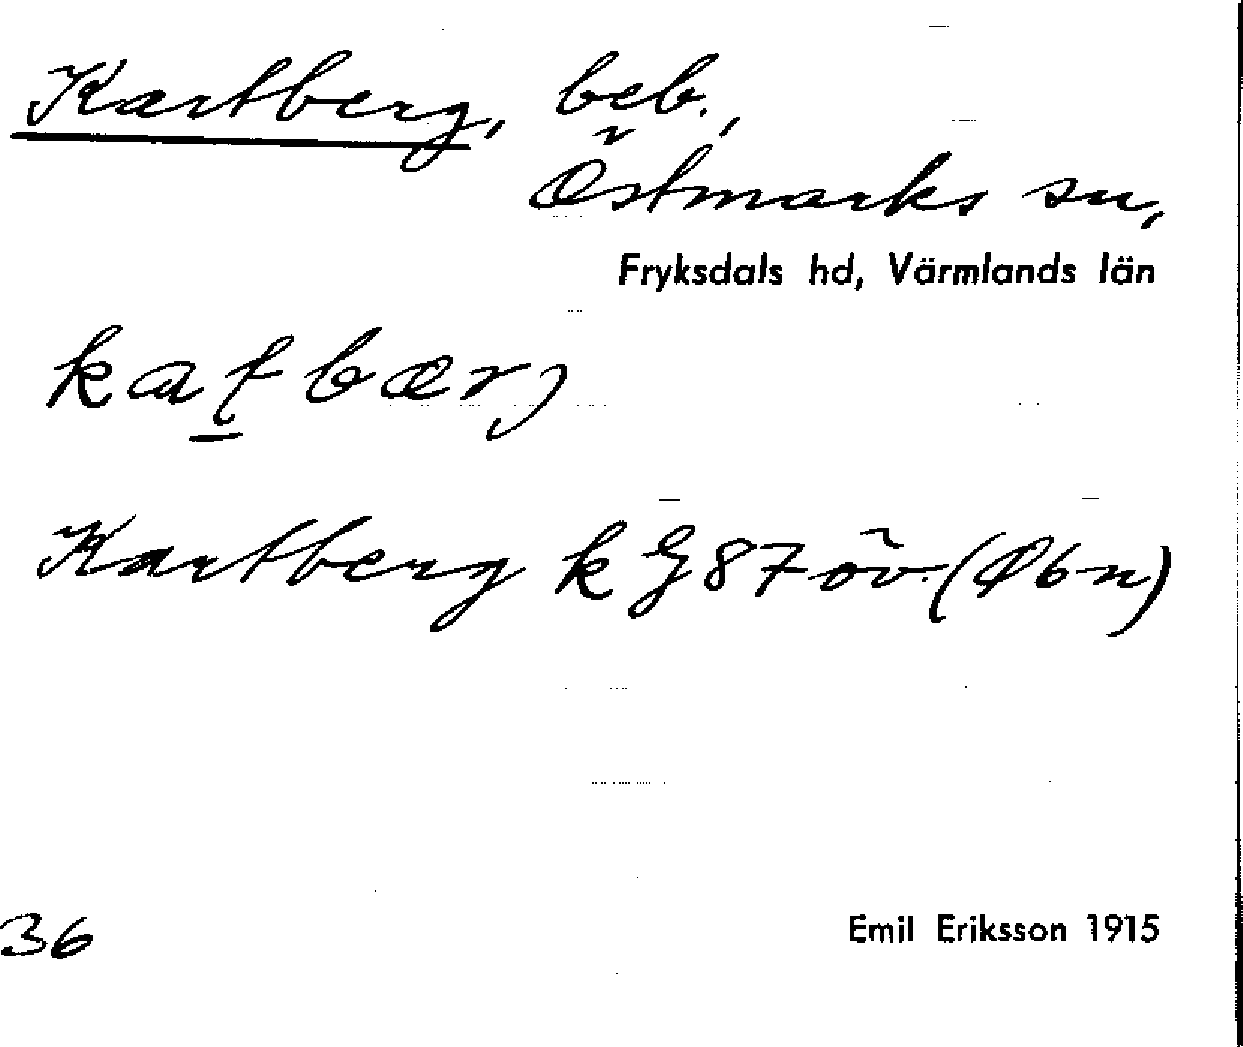 Kartberg, beb.,
Östmarks sn,
Fryksdals hd, Värmlands län
Kartberg k G 87 öv. (Öbn)
36
Emil Eriksson 1915